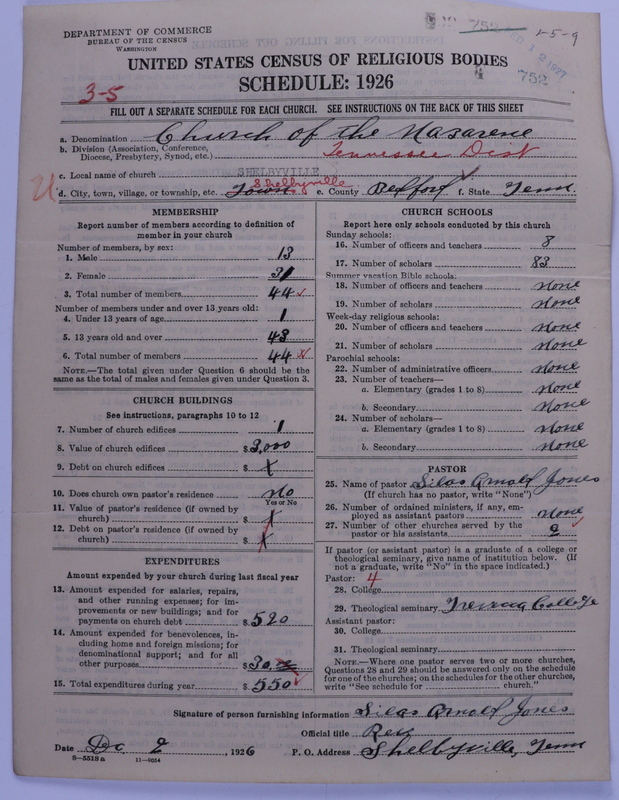 DEPARTMENT OF COMMERCE
BUREAU OF THE CENSUS
WASHINGTON
752
1-5-9
752
UNITED STATES CENSUS OF RELIGIOUS BODIES
SCHEDULE: 1926
3-5
FILL OUT A SEPARATE SCHEDULE FOR EACH CHURCH. SEE INSTRUCTIONS ON THE BACK OF THIS SHEET
a. Denomination Church of the Nazarene
b. Division (Association, Conference, Diocese, Presbytery, Synod, etc.) Tennessee Dist
c. Local name of church SHELBYVILLE
d. City, town, village, or township, etc. Town Shelbyville e. County Bedford f. State Tenn.
MEMBERSHIP
Report number of members according to definition of
member in your church
Number of members, by sex:
1. Male 13
2. Female 31
3. Total number of members 44
Number of members under and over 13 years old:
4. Under 13 years of age 1
5. 13 years old and over 43
6. Total number of members 44
NOTE.—The total given under Question 6 should be
same as the total of males and females given under Question 3.
CHURCH BUILDINGS
See instructions, paragraphs 10 to 12
7. Number of church edifices 1
8. Value of church edifices $ 3,000
9. Debt on church edifices $ x
10. Does church own pastor's residence no
Yes or No
11. Value of pastor's residence (if owned by
church) $ x
12. Debt on pastor's residence (if owned by
church) $ x
EXPENDITURES
Amount expended by your church during last fiscal year
13. Amount expended for salaries, repairs,
and other running expenses; for im-
provements or new buildings; and for
payments on church debt $ 520
14. Amount expended for benevolences, in-
cluding home and foreign missions; for
denominational support; and for all
other purposes $ 30
15. Total expenditures during year $ 550
CHURCH SCHOOLS
Report here only schools conducted by this church
Sunday schools:
16. Number of officers and teachers 8
17. Number of scholars 83
Summer vacation Bible schools:
18. Number of officers and teachers none
19. Number of scholars none
Week-day religious schools:
20. Number of officers and teachers none
21. Number of scholars none
Parochial schools:
22. Number of administrative officers none
23. Number of teachers—
a. Elementary (grades 1 to 8) none
b. Secondary none
24. Number of scholars—
a. Elementary (grades 1 to 8) none
b. Secondary none
PASTOR
25. Name of pastor Silas Arnold Jones
(If church has no pastor, write "None")
26. Number of ordained ministers, if any, em-
ployed as assistant pastors none
27. Number of other churches served by the
pastor or his assistants
If pastor (or assistant pastor) is a graduate of a college or
theological seminary, give name of institution below. (If
not a graduate, write "No" in the space indicated.)
Pastor: 4
28. College
29. Theological seminary Trevecca College
Assistant pastor:
30. College
31. Theological seminary
NOTE.—Where one pastor serves two or more churches,
Questions 28 and 29 should be answered only on the schedule
for one of the churches; on the schedules for the other churches,
write "See schedule for church."
Signature of person furnishing information Silas Arnold Jones
Official title Rev
Date Dc 2, 1926 P. O. Address Shelbyville, Tenn
8-5518a 11-9054